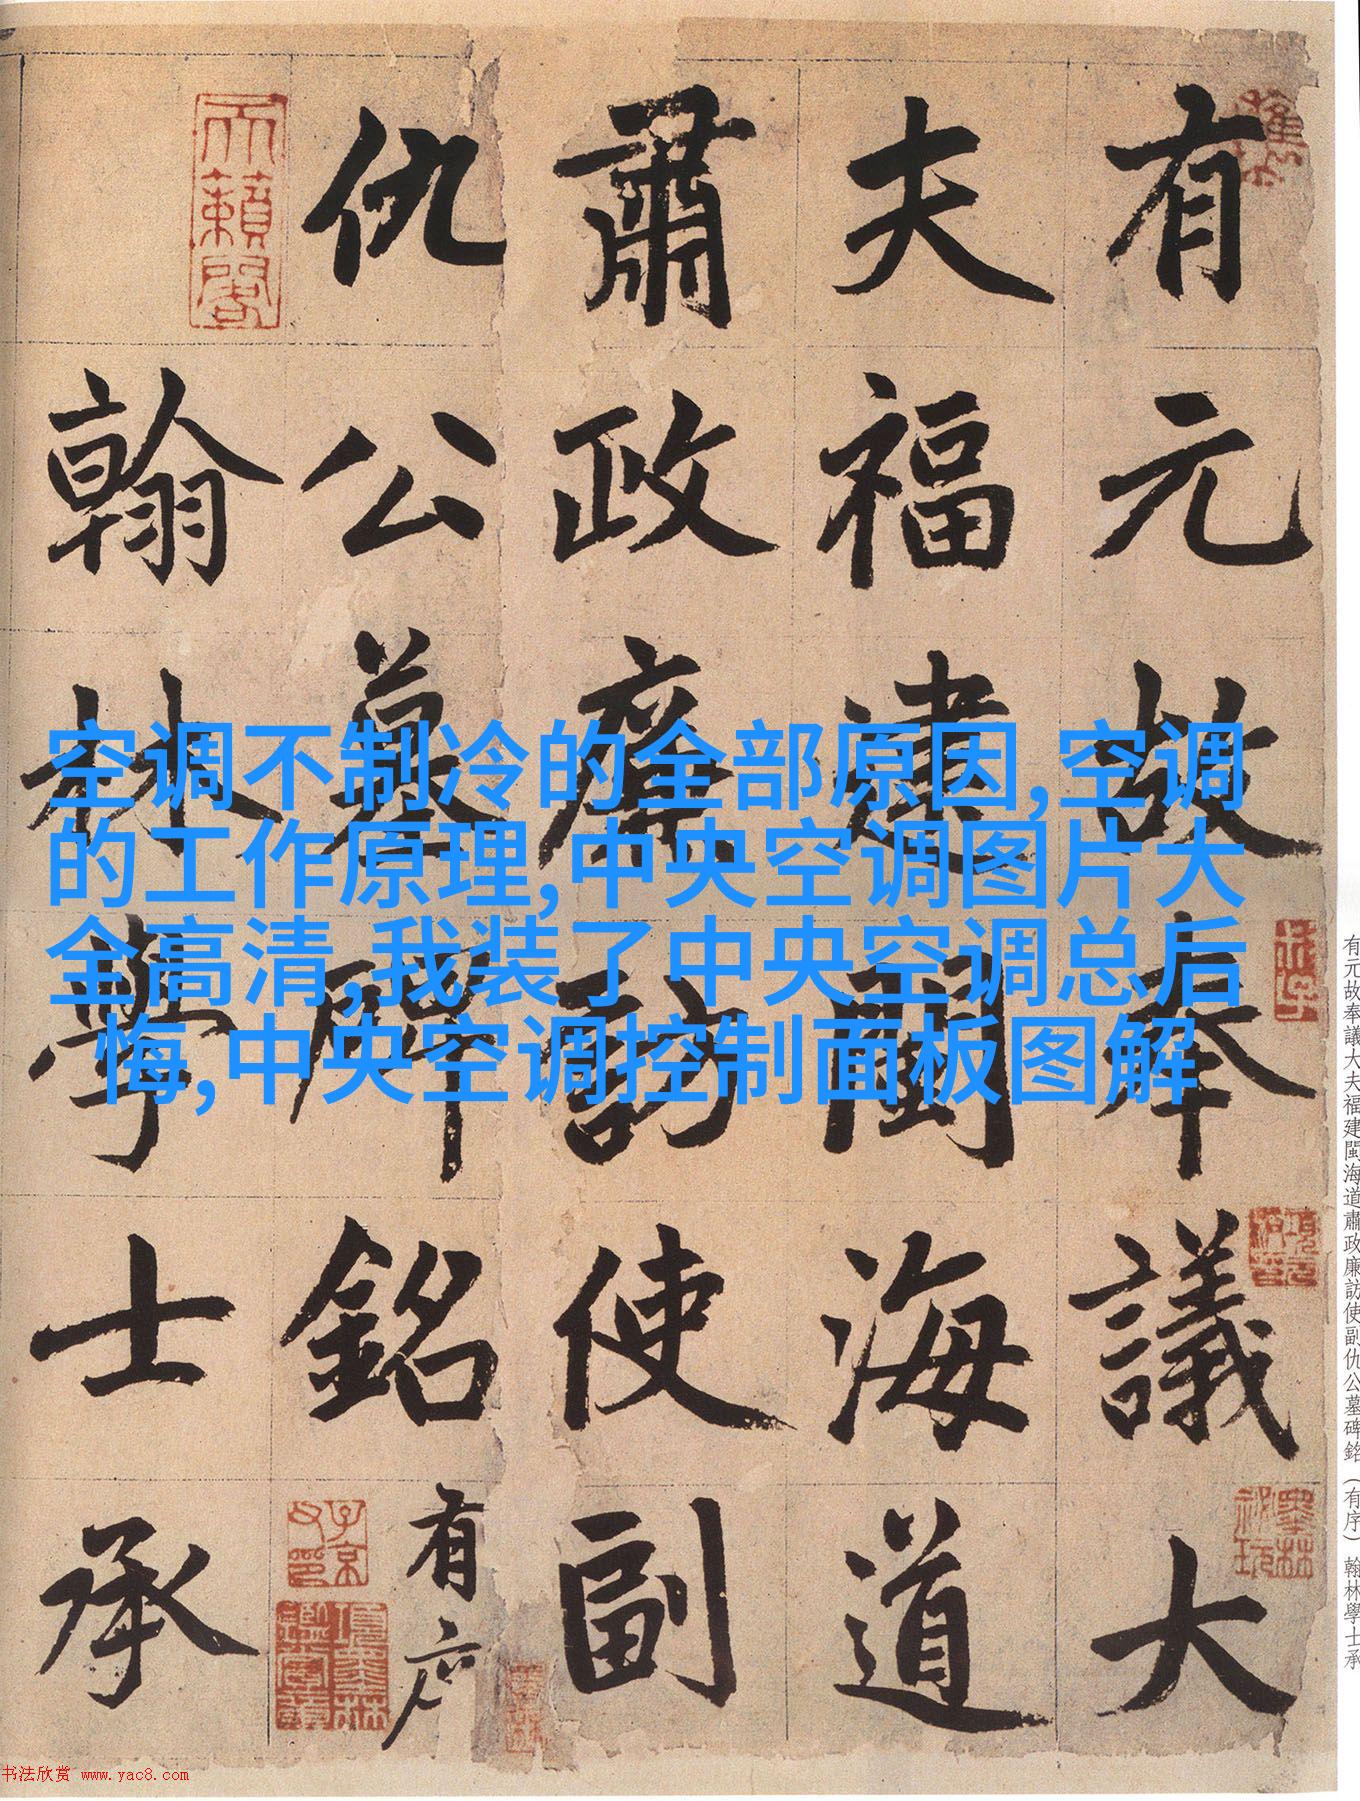 有元故奉議大
夫福建閩海道
肅政廉訪使副
仇公墓碑銘有序
翰林學士承
空调不制冷的全部原因,空调
的工作原理,中央空调图片大
全高清,我装了中央空调总后
悔,中央空调控制面板图解
有元故奉議大夫福建閩海道肅政廉訪使副仇公墓碑銘(有序)翰林學士承
天籟閣
子京
书法欣赏 www.yac8.com